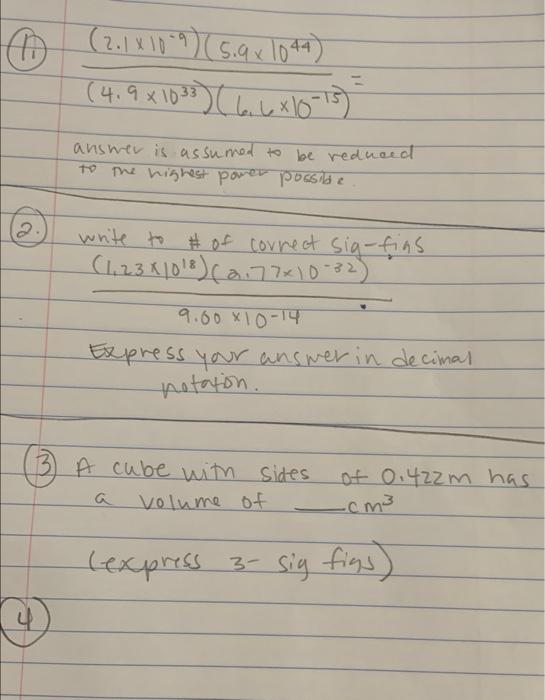 1.
(2.1x10^-9)(5.9x10^44)
=
(4.9x10^33)(6.6x10^-15)
answer is assumed to be reduced
to the highest power possible.
2.
write to # of correct sig-figs
(1.23x10^18)(2.77x10^-32)
9.00 x10^-14
Express your answer in decimal
notation.
3 A cube with sides of 0.422m has
a volume of ___cm³
(express 3- sig figs)
4